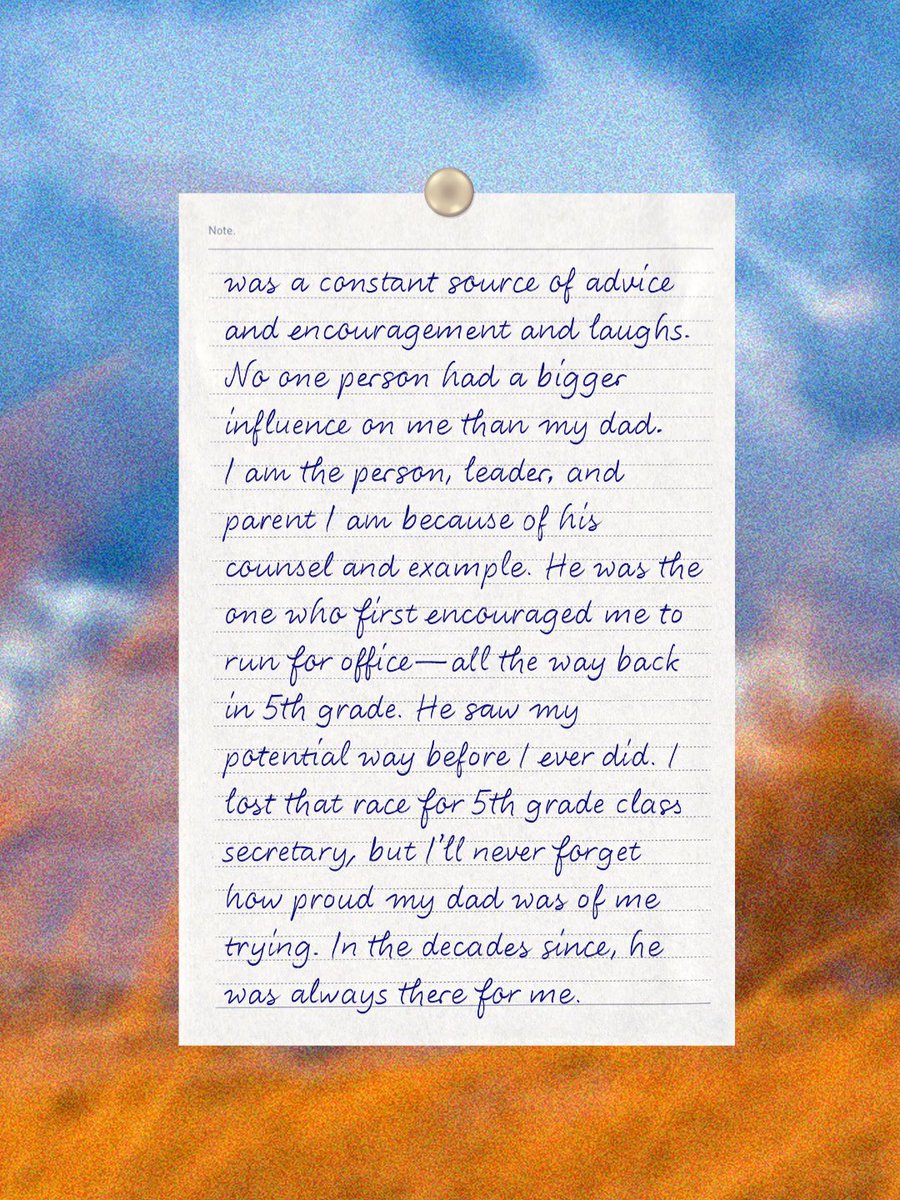 Note.
was a constant source of advice
and encouragement and laughs.
No one person had a bigger
influence on me than my dad.
I am the person, leader, and
parent I am because of his
counsel and example. He was the
one who first encouraged me to
run for office—all the way back
in 5th grade. He saw my
potential way before I ever did. I
lost that race for 5th grade class
secretary, but I'll never forget
how proud my dad was of me
trying. In the decades since, he
was always there for me.